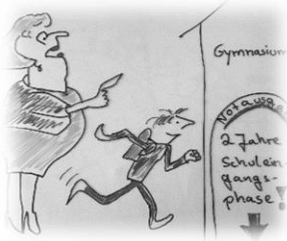 Gymnasium
Notausga
2 Jahre
Schulein-
gangs-
phase!